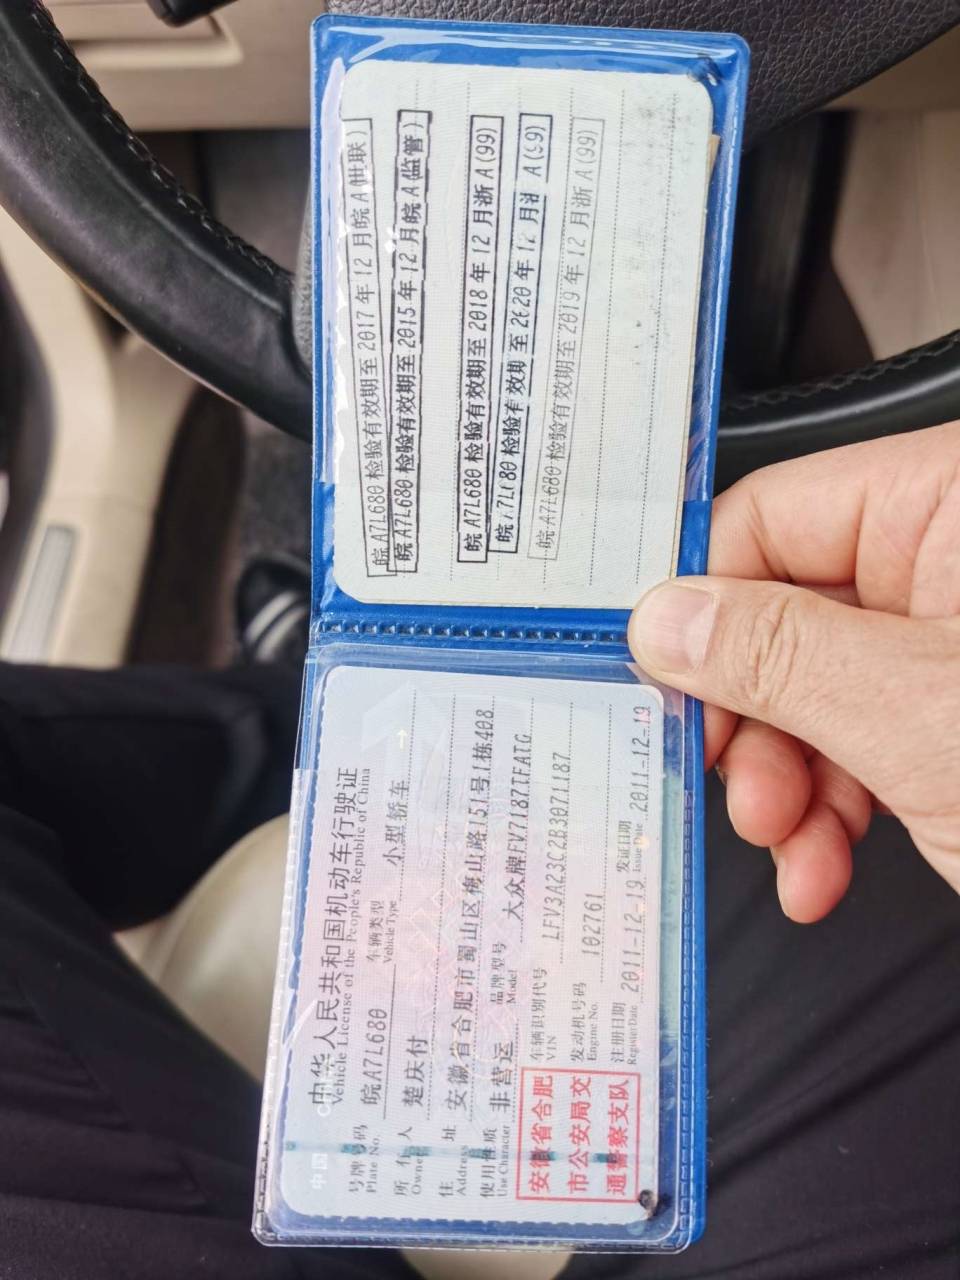 中国
中华人民共和国机动车行驶证
Vehicle License of the People's Republic of China
号牌号码 皖A7L680 车辆类型 小型轿车
Plate No. Vehicle Type
所有人 楚庆付
Owner
住址 安徽省合肥市蜀山区梅山路151号1栋408
Address
使用性质 非营运 品牌型号 大众牌FV7187TFATG
Use Character Model
安徽省合肥
市公安局交
通警察支队
车辆识别代号 LFV3A23C2B3071187
VIN
发动机号码 102761
Engine No.
注册日期 2011-12-19 发证日期 2011-12-19
Register Date Issue Date
皖A7L680检验有效期至2017年12月皖A(世联)
皖A7L680检验有效期至2015年12月皖A(监管)
皖A7L680检验有效期至2018年12月浙A(99)
皖A7L680检验有效期至2020年12月浙A(99)
皖A7L680检验有效期至2019年12月浙A(99)